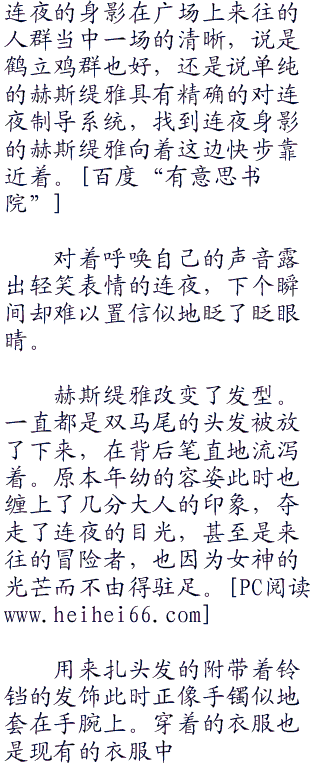 连夜的身影在广场上来往的
人群当中一场的清晰，说是
鹤立鸡群也好，还是说单纯
的赫斯缇雅具有精确的对连
夜制导系统，找到连夜身影
的赫斯缇雅向着这边快步靠
近着。[百度“有意思书
院”]
对着呼唤自己的声音露
出轻笑表情的连夜，下个瞬
间却难以置信似地眨了眨眼
睛。
赫斯缇雅改变了发型。
一直都是双马尾的头发被放
了下来，在背后笔直地流泻
着。原本年幼的容姿此时也
缠上了几分大人的印象，夺
走了连夜的目光，甚至是来
往的冒险者，也因为女神的
光芒而不由得驻足。[PC阅读
www.heihei66.com]
用来扎头发的附带着铃
铛的发饰此时正像手镯似地
套在手腕上。穿着的衣服也
是现有的衣服中